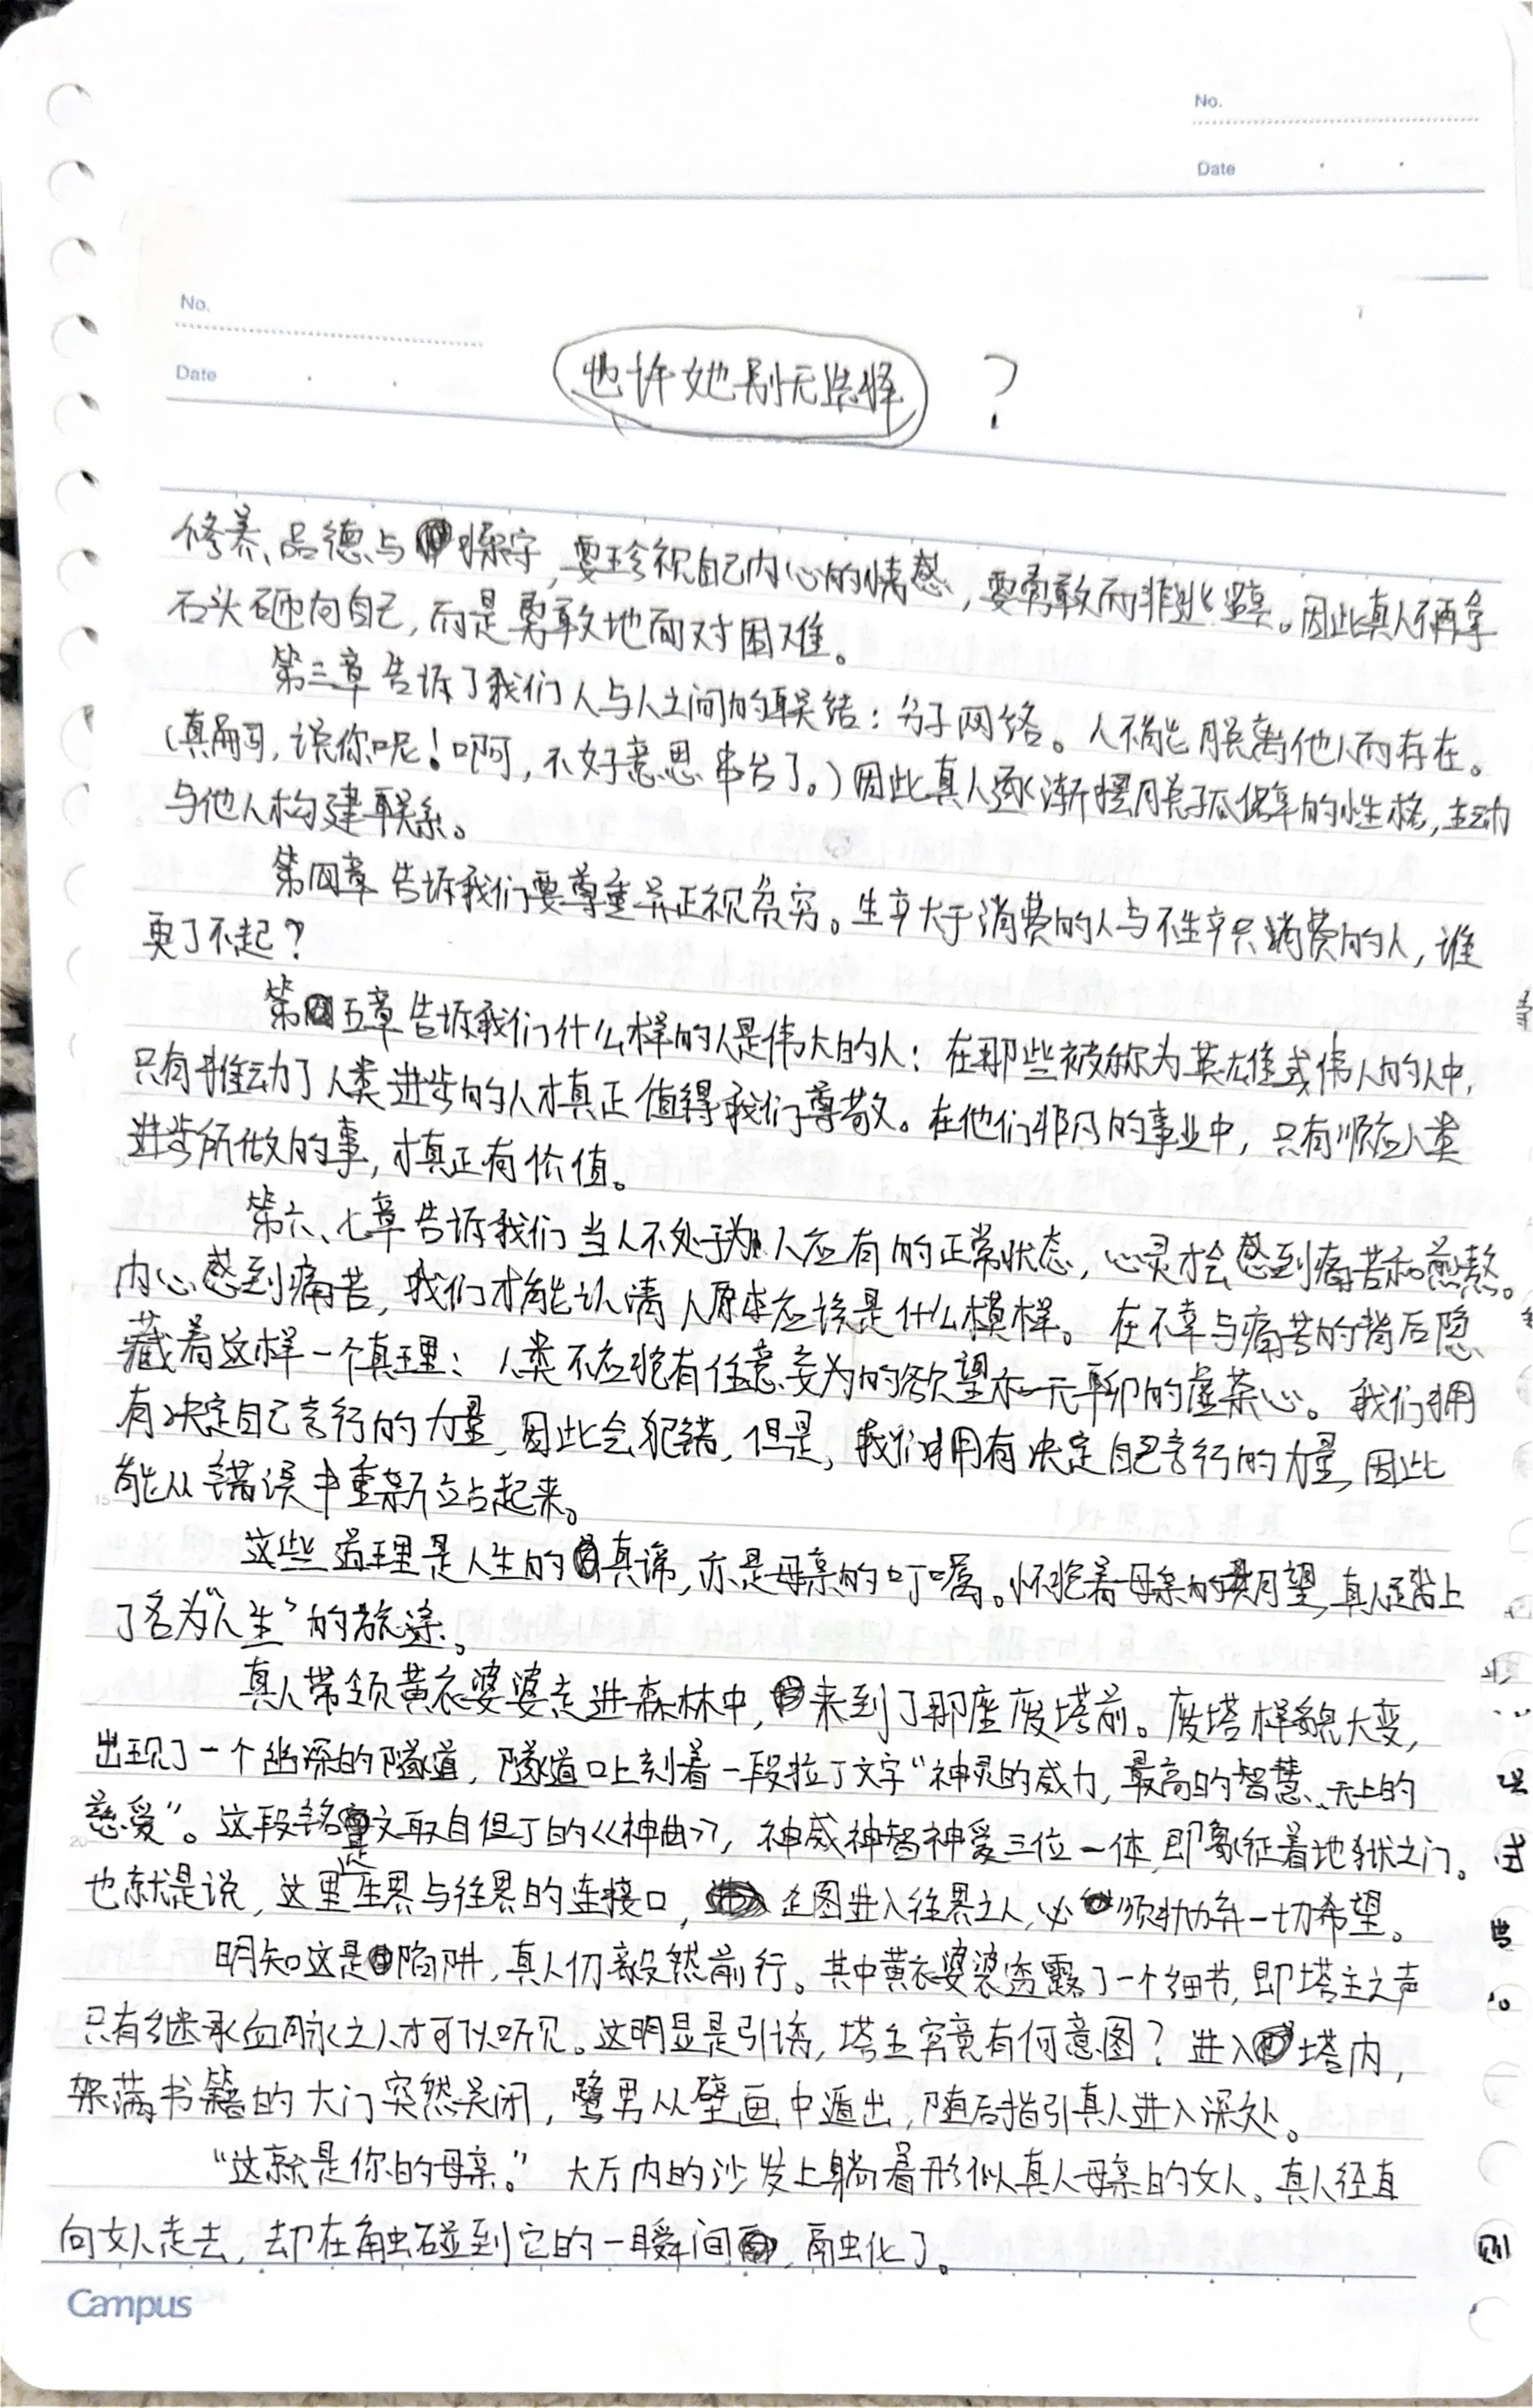 No.
Date
No.
Date
也许她别无选择 ?
修养、品德与操守,要珍视自己内心的情感,要勇敢而非逃避。因此真人不再拿
石头砸向自己,而是勇敢地面对困难。
第三章告诉了我们人与人之间的联结:分子网络。人不能脱离他人而存在。
(真嗣,说你呢!啊,不好意思串台了。)因此真人逐渐摆脱孤僻的性格,主动
与他人构建联系。
第四章告诉我们要尊重并正视贫穷。生产大于消费的人与不生产只消费的人,谁
更了不起?
第五章告诉我们什么样的人是伟大的人:在那些被称为英雄或伟人的人中,
只有推动了人类进步的人才真正值得我们尊敬。在他们非凡的事业中,只有顺应人类
进步所做的事,才真正有价值。
第六、七章告诉我们当人不处于为人应有的正常状态,心灵才会感到痛苦和煎熬。
内心感到痛苦,我们才能认清人原本应该是什么模样。在不幸与痛苦的背后隐
藏着这样一个真理:人类不应抱有任意妄为的欲望和无聊的虚荣心。我们拥
有决定自己言行的力量,因此会犯错,但是,我们拥有决定自己言行的力量,因此
能从错误中重新站起来。
这些道理是人生的真谛,亦是母亲的叮嘱。怀抱着母亲的期望,真人踏上
了名为“人生”的旅途。
真人带领黄衣婆婆走进森林中,来到了那座废塔前。废塔样貌大变,
出现了一个幽深的隧道,隧道口上刻着一段拉丁文字“神灵的威力,最高的智慧、无上的
慈爱”。这段铭文取自但丁的《神曲》,神威神智神爱三位一体,即象征着地狱之门。
也就是说,这里是生界与往界的连接口,企图进入往界之人,必须抛弃一切希望。
明知这是陷阱,真人仍毅然前行。其中黄衣婆婆透露了一个细节,即塔主之声
只有继承血脉之人才可以听见。这明显是引诱,塔主究竟有何意图?进入塔内,
架满书籍的大门突然关闭,鹭男从壁画中遁出,随后指引真人进入深处。
“这就是你的母亲。”大厅内的沙发上躺着形似真人母亲的女人。真人径直
向女人走去,却在触碰到它的一瞬间,融化了。
Campus